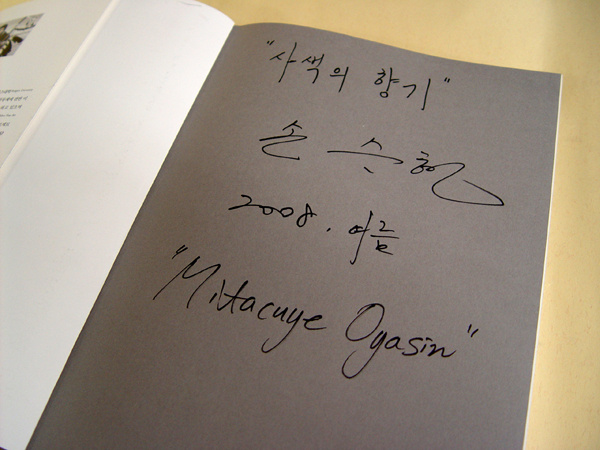 "사색의 향기"
손 승현
2008. 여름
"Mitacuye Oyasin"